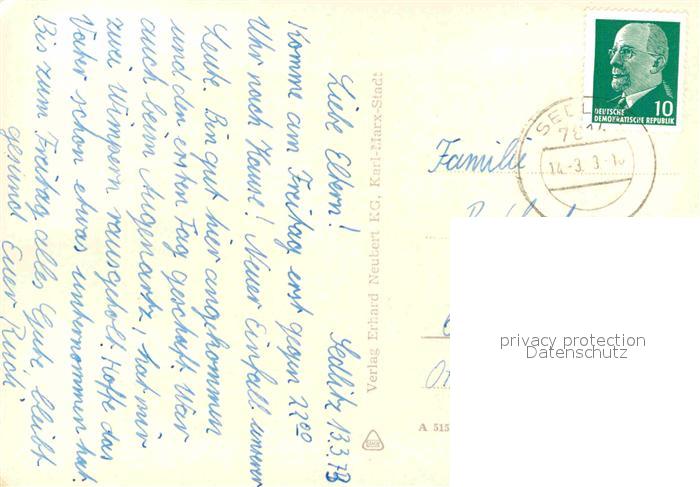 Liebe Eltern! Sedlitz 13.3.73
Komme am Freitag erst gegen 22 00
Uhr nach Hause! Neuer Einfall unserer
Leute. Bin gut hier angekommen
und den ersten Tag geschafft. War
auch beim Augenartz, hat mir
zwei Wimpern rausgeholt. Hoffe das
Vater schon etwas unternommen hat.
Bis zum Freitag alles Gute, bleibt
gesund Euer Rudi
Verlag Erhard Neubert KG, Karl-Marx-Stadt
A 515
DEUTSCHE
DEMOKRATISCHE REPUBLIK
10
14-3
Familie
privacy protection
Datenschutz